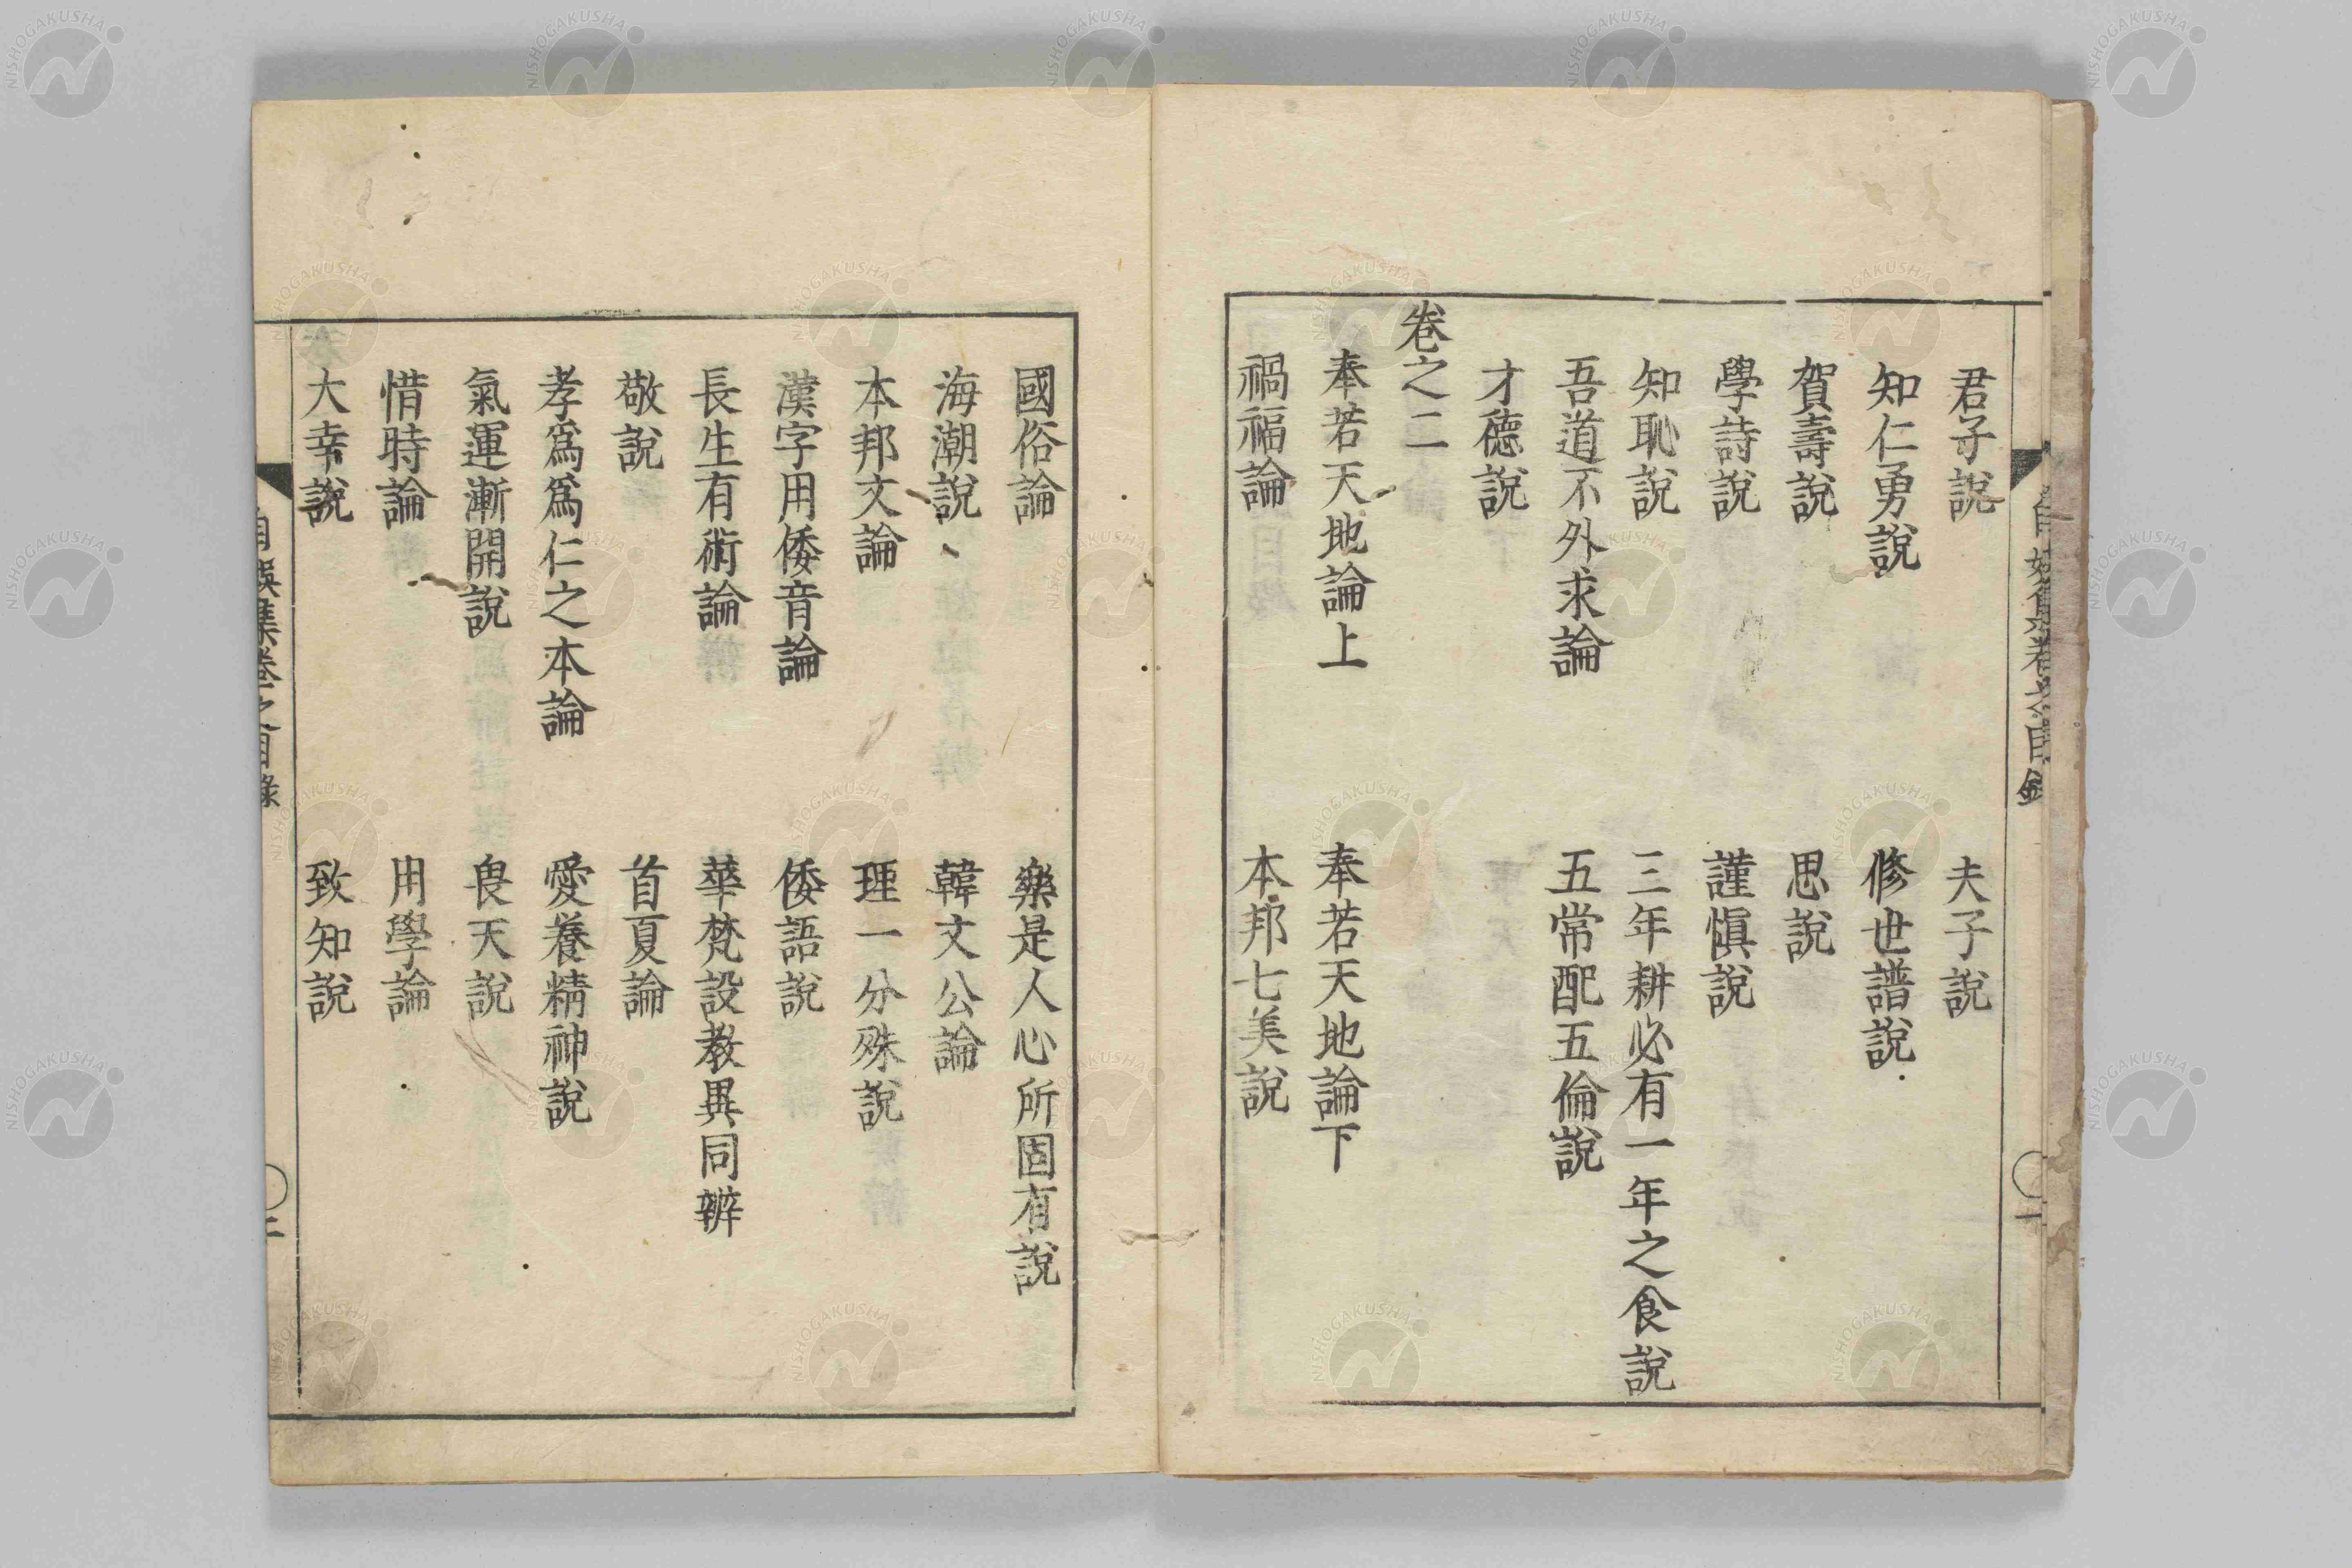 君子說 夫子說
知仁勇說 修世譜說
賀壽說 思說
學詩說 謹愼說
知恥說 三年耕必有一年之食說
吾道不外求論 五常配五倫說
才德說
卷之二
奉若天地論上 奉若天地論下
禍福論 本邦七美說
國俗論 樂是人心所固有說
海潮說 韓文公論
本邦文論 理一分殊說
漢字用倭音論 倭語說
長生有術論 華梵設教異同辨
敬說 首夏論
孝爲爲仁之本論 愛養精神說
氣運漸開說 畏天說
惜時論 用學論
大幸說 致知說
自娛集卷之目錄
二
NISHOGAKUSHA